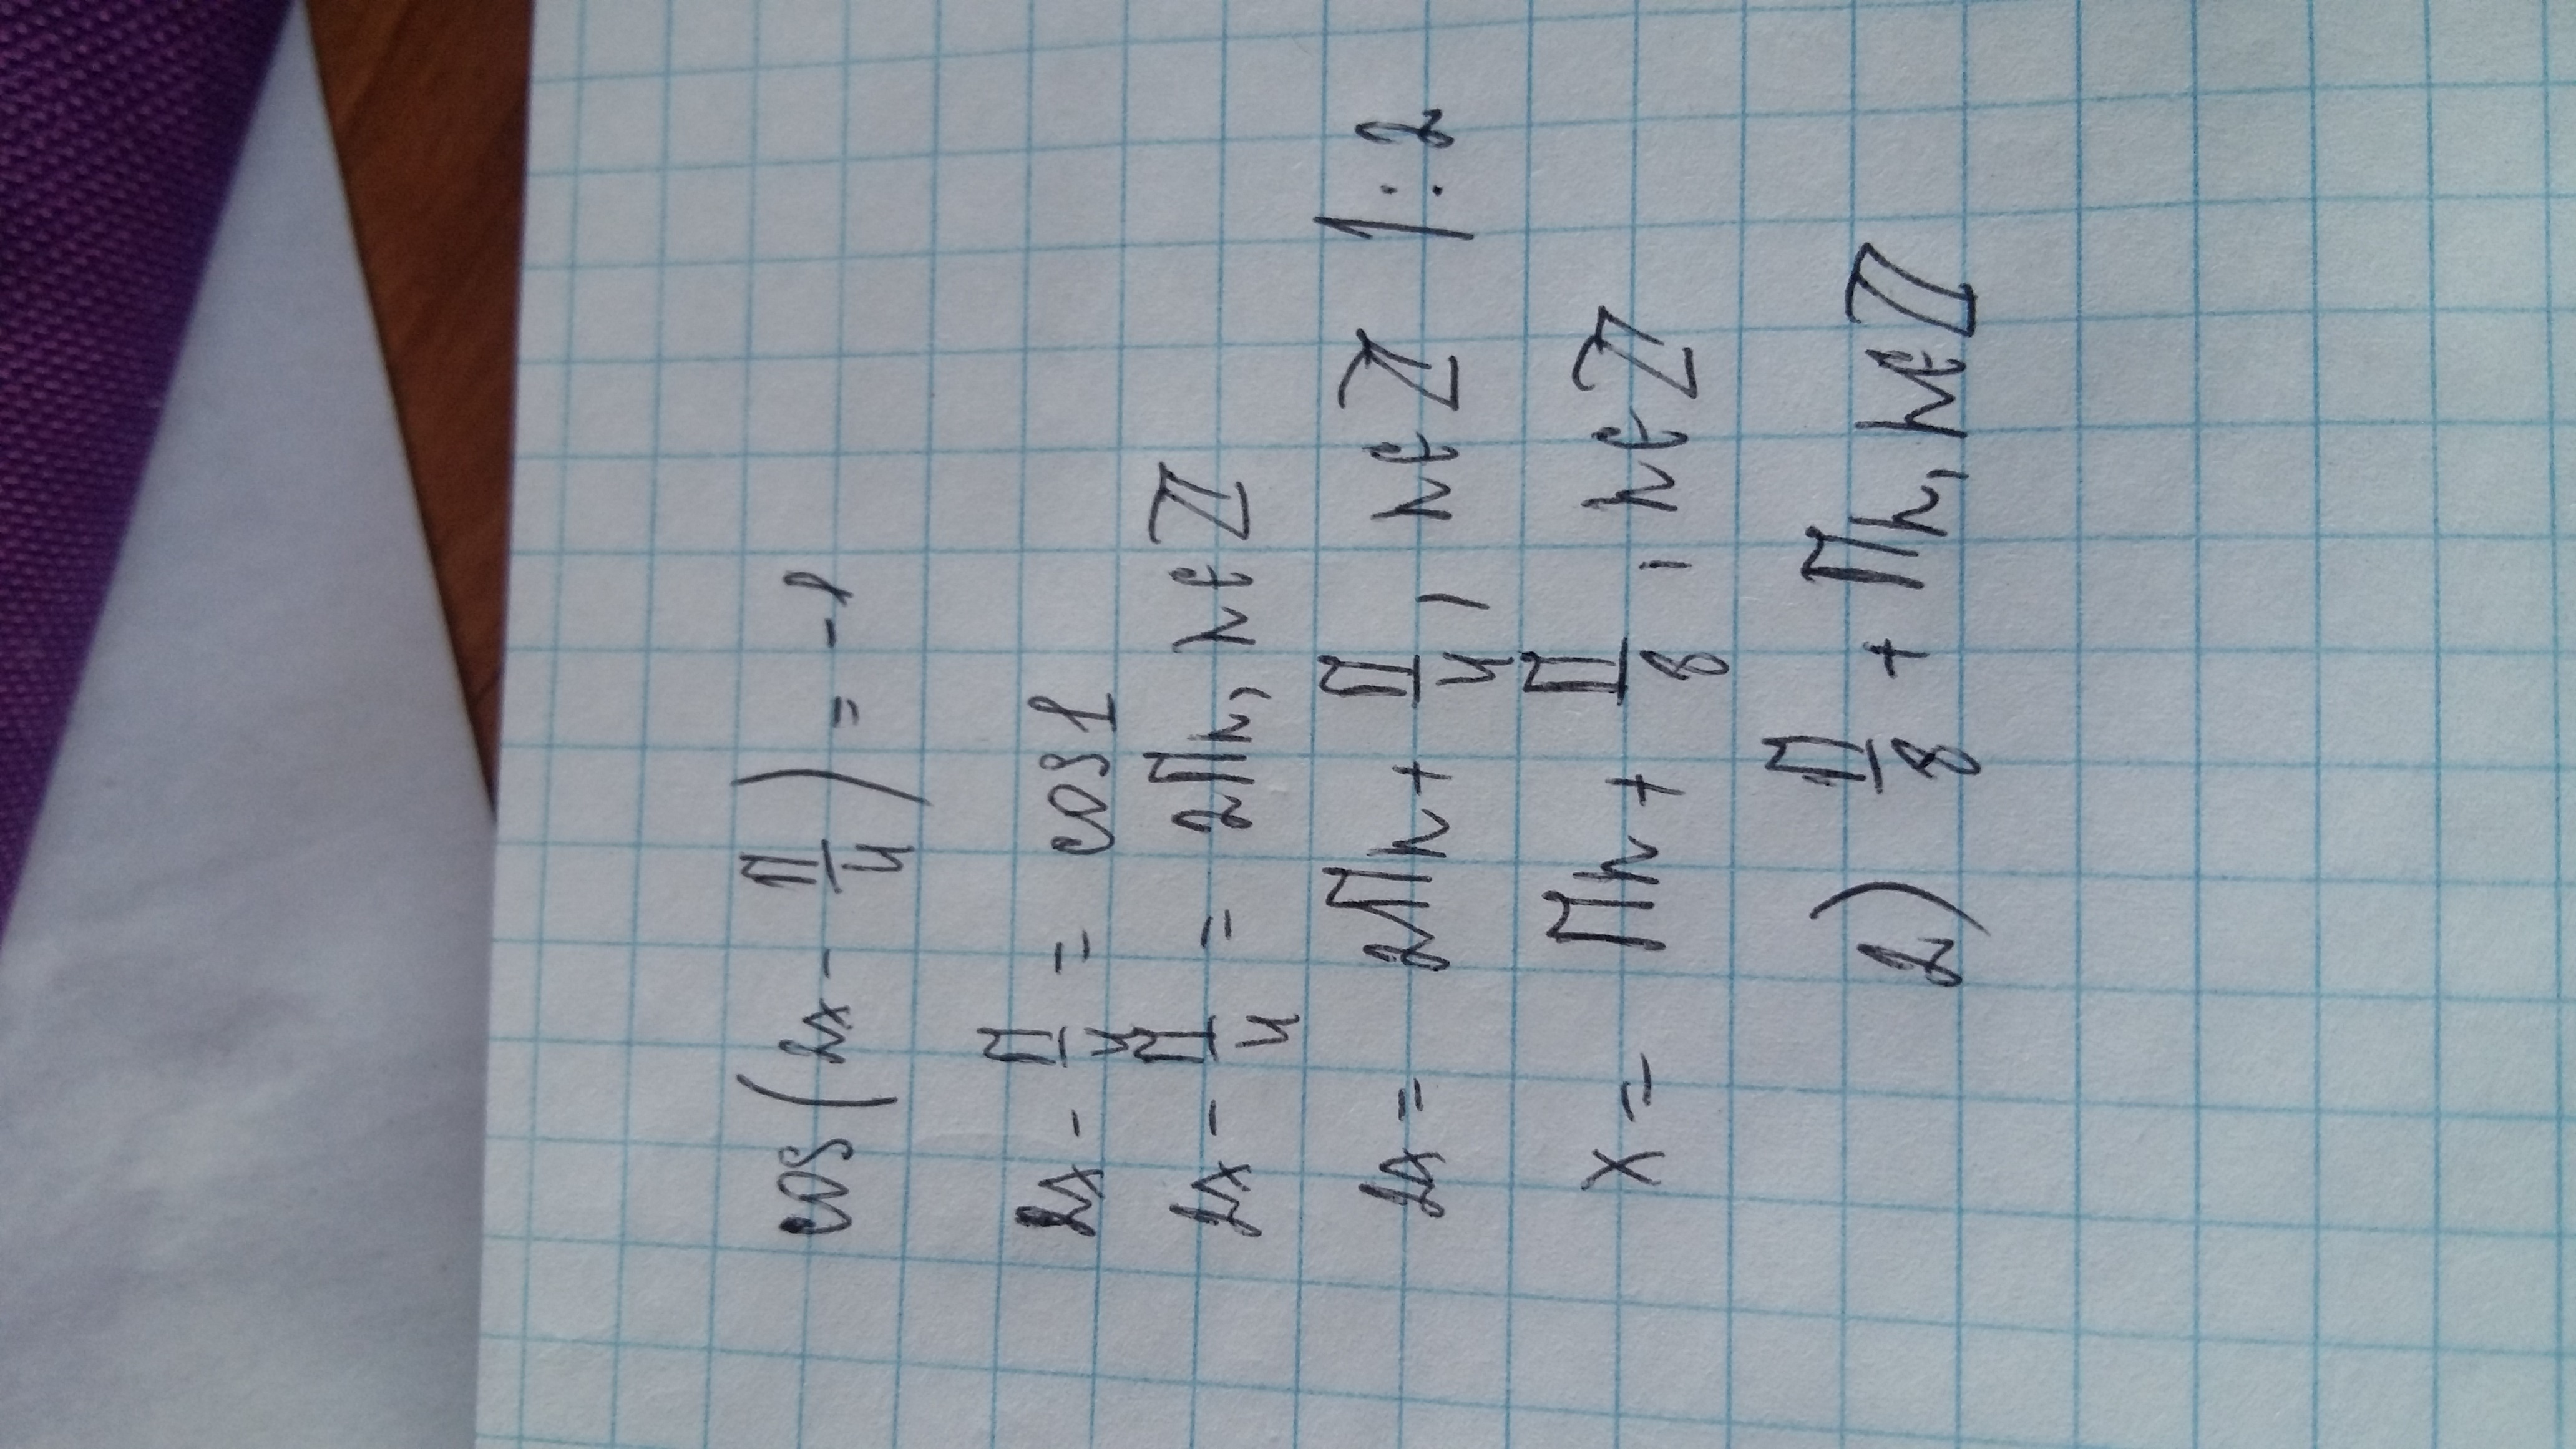 cos(2x - π/4) = -1
2x - π/4 = cos 1
2x - π/4 = 2πn, n∈Z
2x = 2πn + π/4, n∈Z |:2
x = πn + π/8; n∈Z
2) π/8 + πn, n∈Z